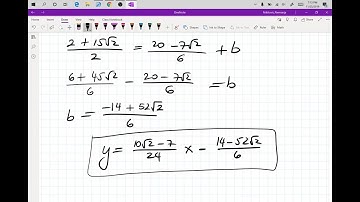 (2 + 15√2)/2 = (20 - 7√2)/6 + b
(6 + 45√2)/6 - (20 - 7√2)/6 = b
b = (-14 + 52√2)/6
y = (10√2 - 7)/24 x - (14 - 52√2)/6